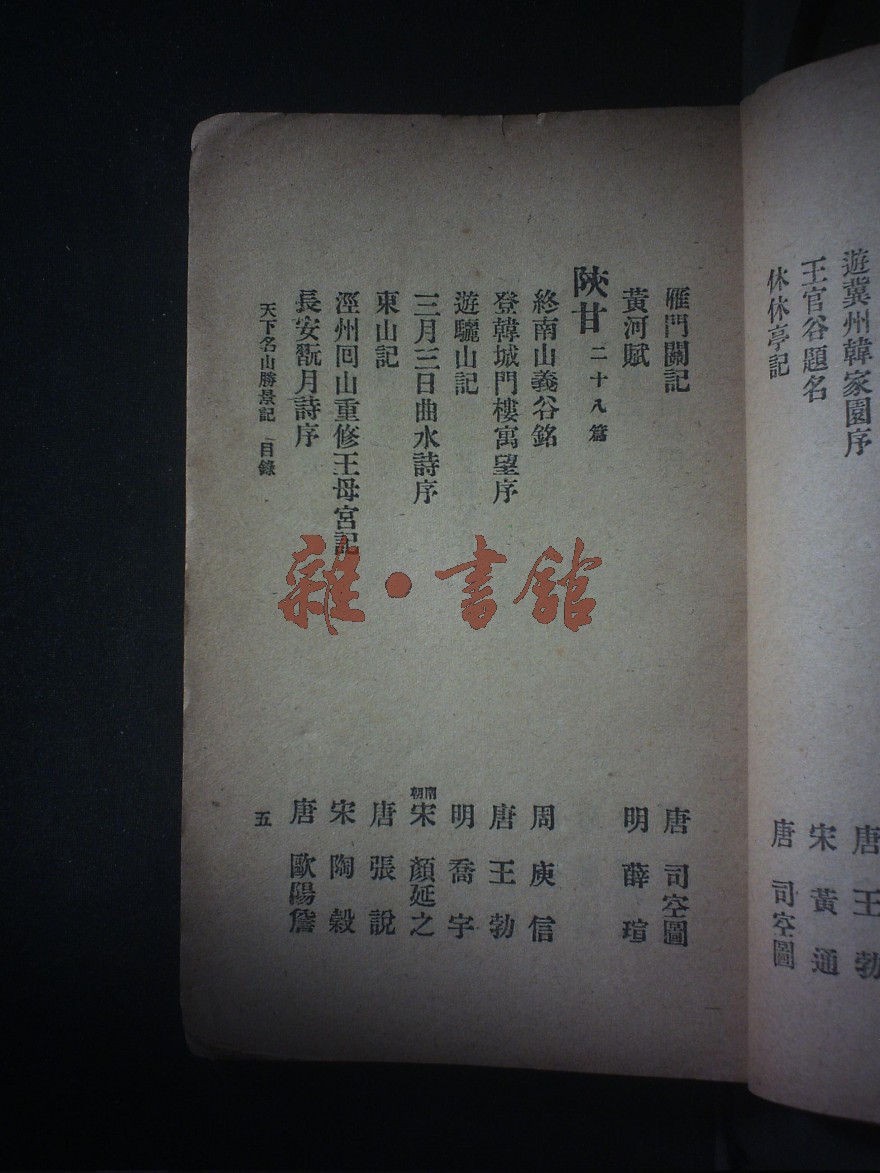 遊冀州韓家園序 唐 王勃
王官谷題名 宋 黃通
休休亭記 唐 司空圖
雁門關記 唐 司空圖
黃河賦 明 薛瑄
陝甘 二十八篇
終南山義谷銘 周 庾信
登韓城門樓寓望序 唐 王勃
遊驪山記 明 喬宇
三月三日曲水詩序 南朝宋 顏延之
東山記 唐 張說
涇州回山重修王母宮記 宋 陶穀
長安翫月詩序 唐 歐陽詹
天下名山勝景記 目錄 五
雜·書館